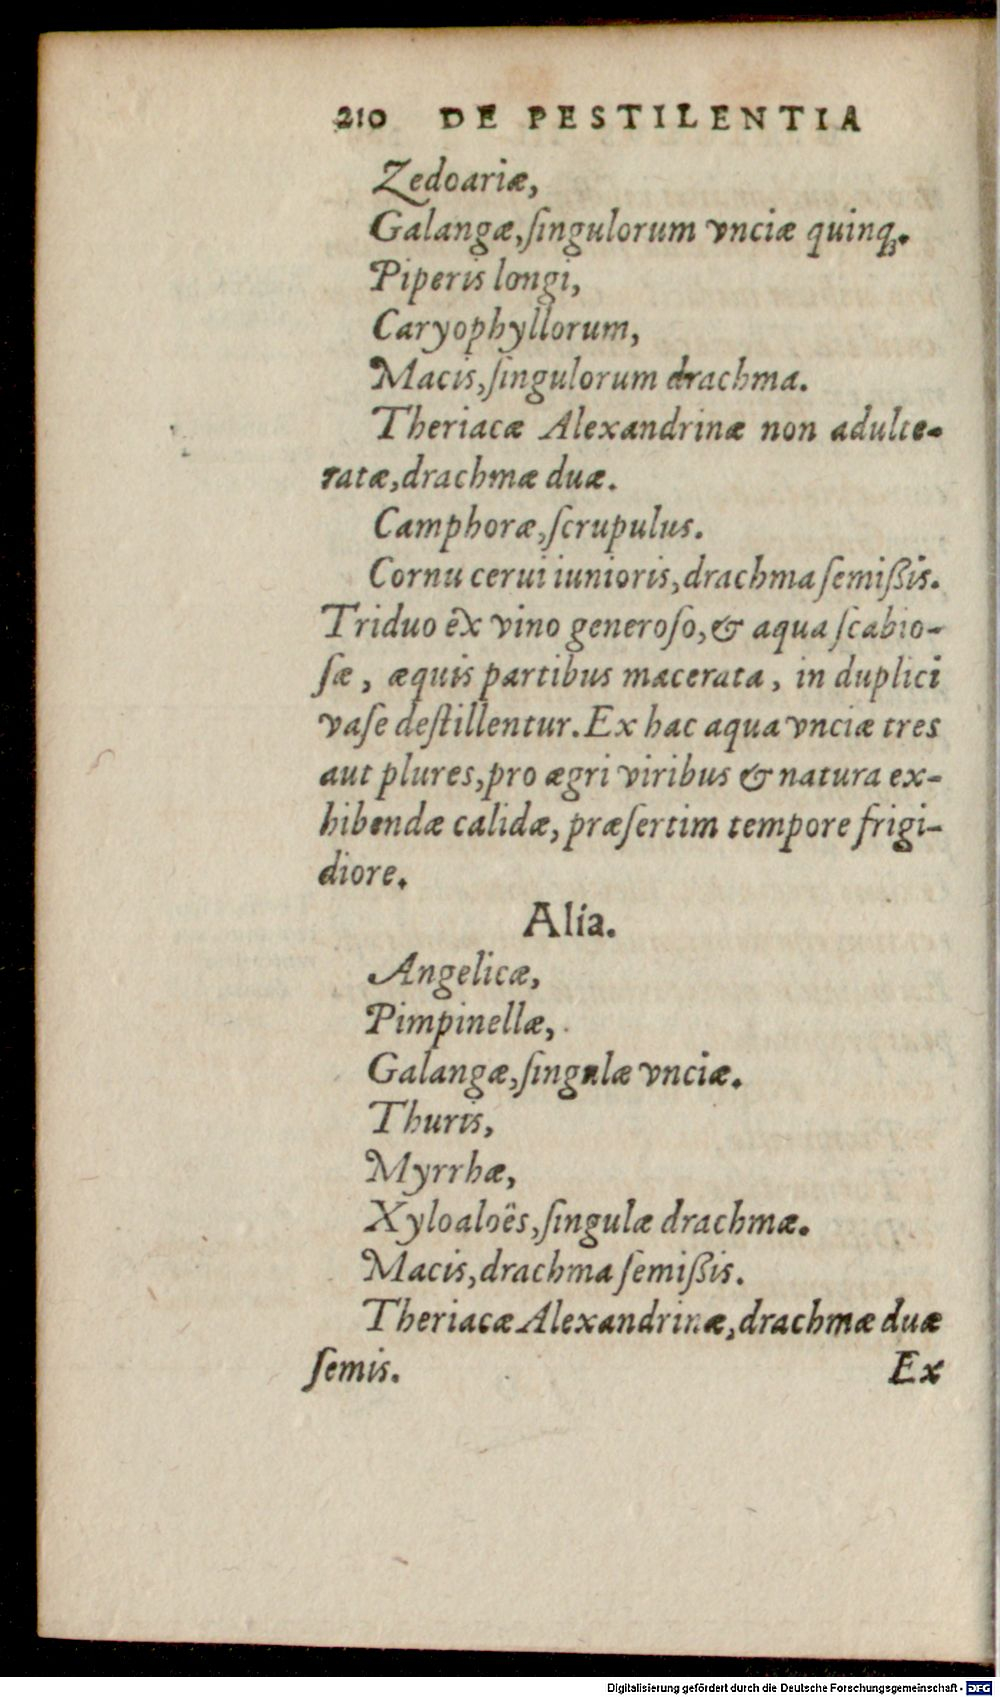 210 DE PESTILENTIA
Zedoariæ,
Galangæ, ſingulorum vnciæ quinq́ꝫ.
Piperis longi,
Caryophyllorum,
Macis, ſingulorum drachma.
Theriacæ Alexandrinæ non adulte-
ratæ, drachmæ duæ.
Camphoræ, ſcrupulus.
Cornu cerui iunioris, drachma ſemißis.
Triduo ex vino generoſo, & aqua ſcabio-
ſæ, æquis partibus macerata, in duplici
vaſe deſtillentur. Ex hac aqua vnciæ tres
aut plures, pro ægri viribus & natura ex-
hibendæ calidæ, præſertim tempore frigi-
diore.
Alia.
Angelicæ,
Pimpinellæ,
Galangæ, ſingulæ vnciæ.
Thuris,
Myrrhæ,
Xyloaloës, ſingulæ drachmæ.
Macis, drachma ſemißis.
Theriacæ Alexandrinæ, drachmæ duæ
ſemis. Ex
Digitalisierung gefördert durch die Deutsche Forschungsgemeinschaft - DFG